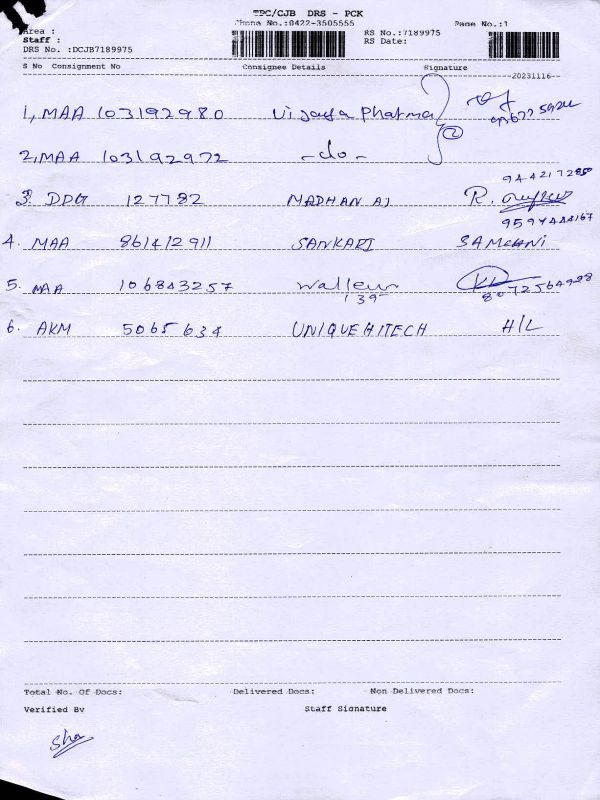 TPC/CJB DRS - PCK
Phone No.:0422-3505555 Page No.:1
Area : RS No.:7189975
Staff : RS Date:
DRS No. :DCJB7189975
S No Consignment No Consignee Details Signature
20231116
1, MAA 103192980 Vijaya Pharma
2, MAA 103192972 -do- 2
9442172850
3. DDG 127782 MADHAN AJ R.
9597444167
4. MAA 861412911 SANKARI
5. MAA 106843257
139 8072564928
6. AKM 5065634 UNIQUE HITECH H/L
Total No. Of Docs: Delivered Docs: Non Delivered Docs:
Verified By Staff Signature
Sha